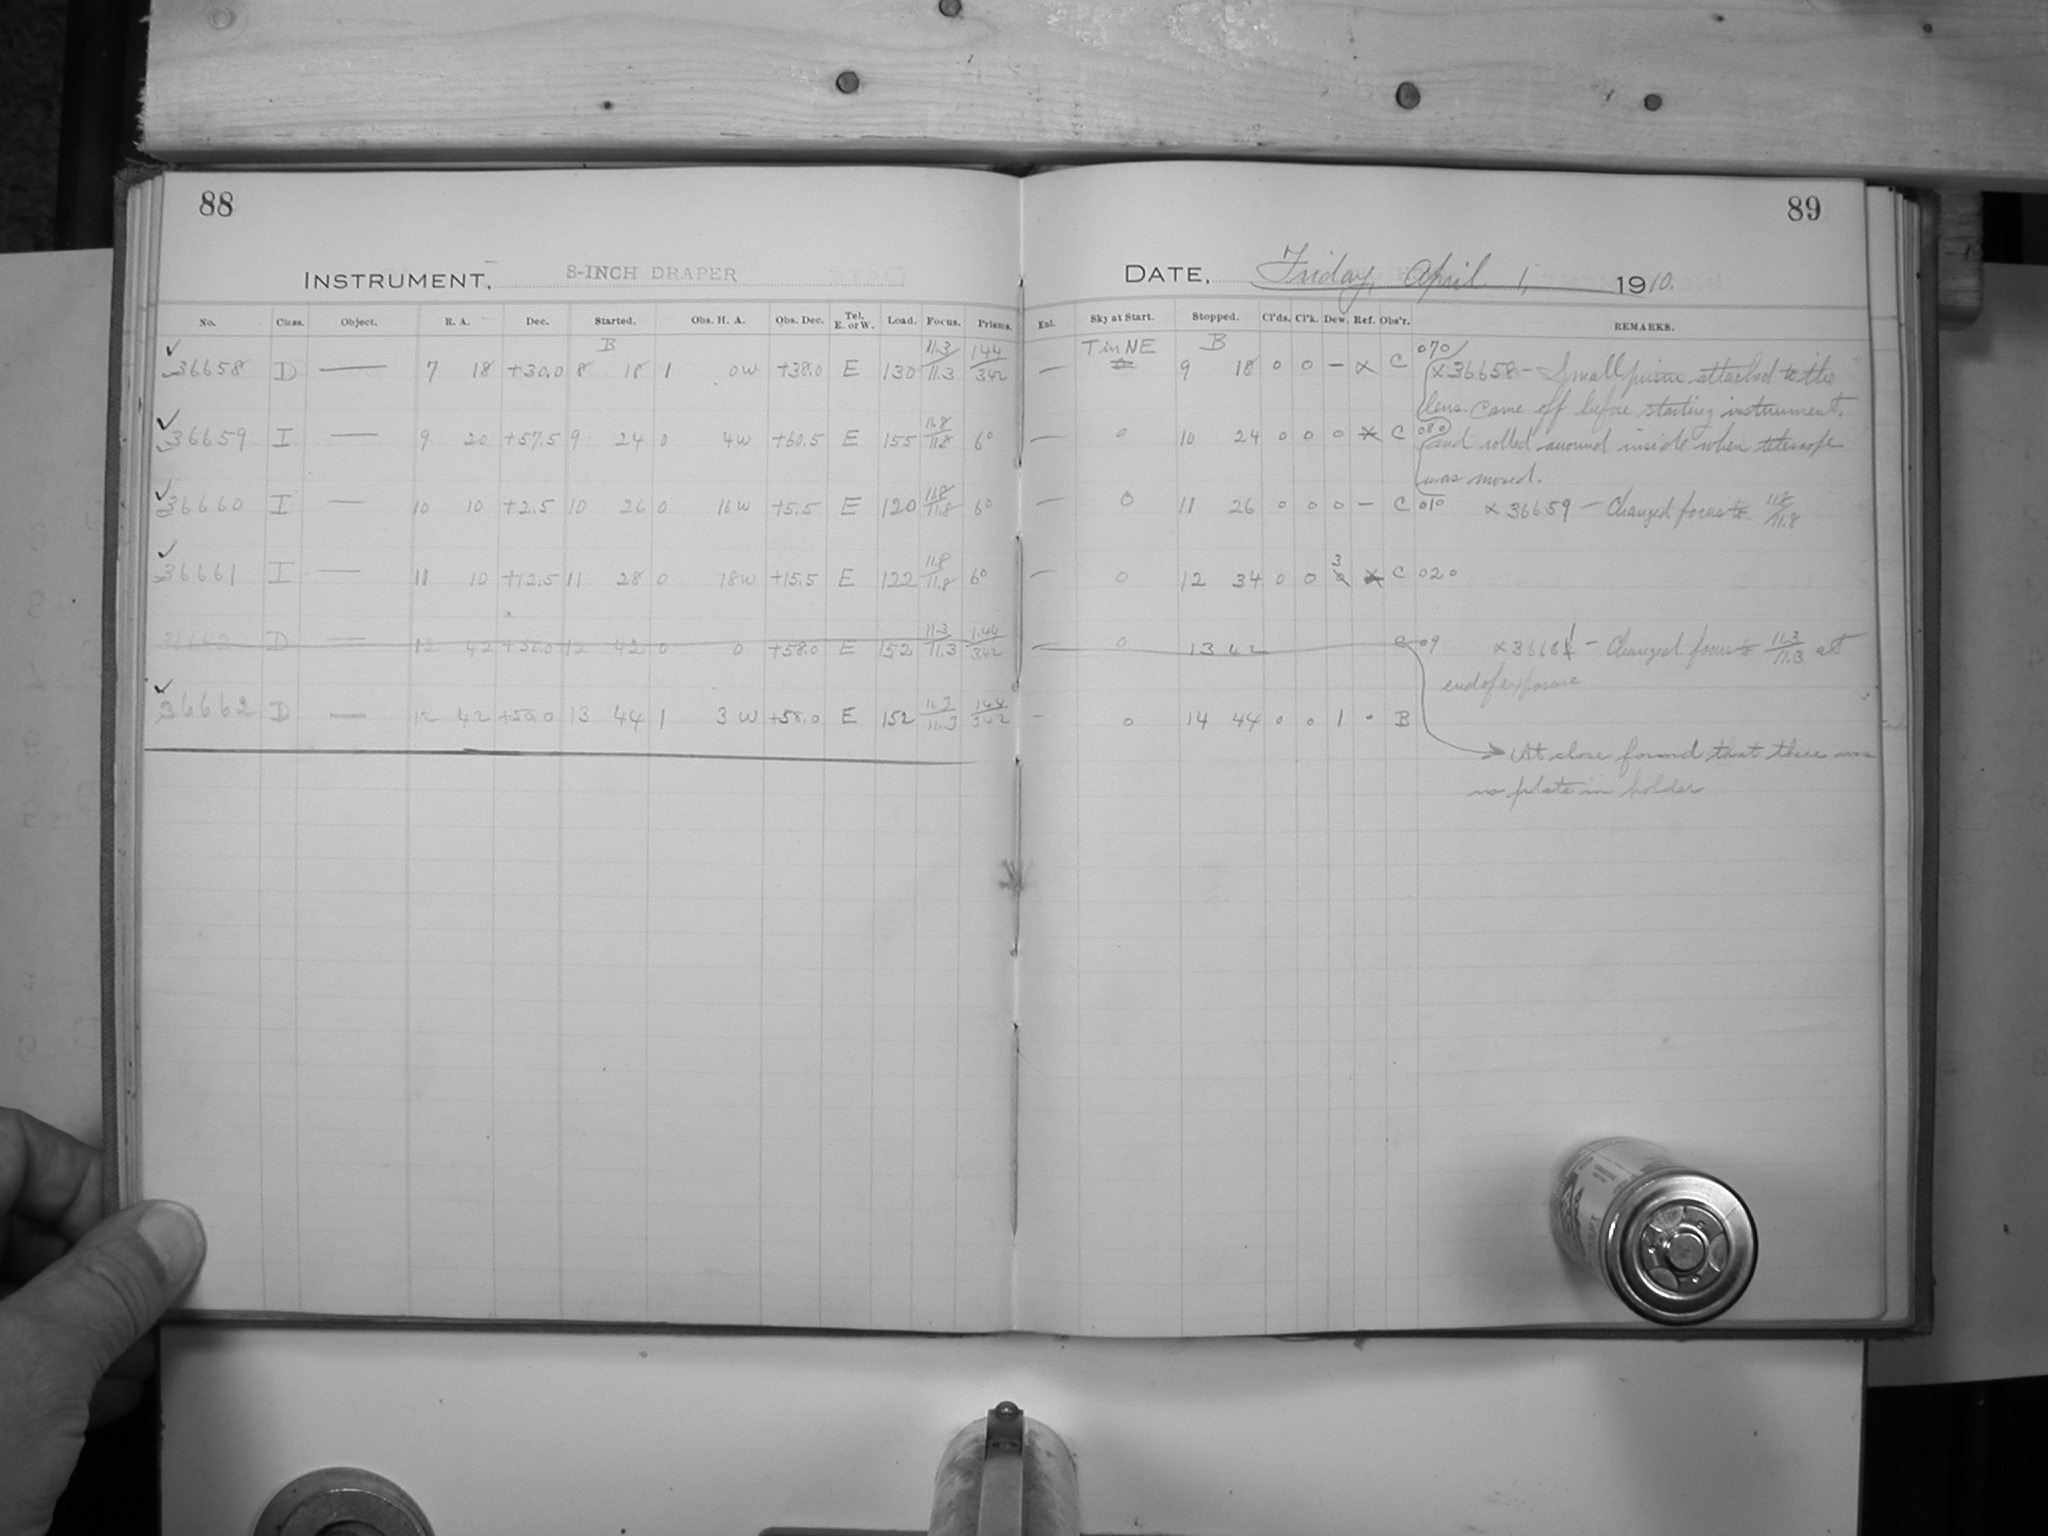 88
INSTRUMENT, 8-INCH DRAPER
No. Class. Object. R. A. Dec. Started. Obs. H. A. Obs. Dec. Tel. E. or W. Load. Focus. Prisms.
B
✓ 36658 D — 7 18 +30.0 8 18 1 0W +38.0 E 130 11.3/11.3 144/342
✓ 36659 I — 9 20 +57.5 9 24 0 4W +60.5 E 155 11.8/11.8 6°
✓ 36660 I — 10 10 +2.5 10 26 0 16W +5.5 E 120 11.8/11.8 6°
✓ 36661 I — 11 10 +12.5 11 28 0 18W +15.5 E 122 11.8/11.8 6°
36662 D — 12 42 +50.0 12 42 0 0 +58.0 E 152 11.3/11.3 144/342
✓ 36662 D — 12 42 +50.0 13 44 1 3W +58.0 E 152 11.3/11.3 144/342
89
DATE, Friday, April 1, 1910.
Enl. Sky at Start. Stopped. Cl'ds. Cl'k. Dew. Ref. Obs'r. REMARKS.
T in NE B
— 9 18 0 0 — x C 070 x 36658 — Small prism attached to the
lens. Came off before starting instrument.
— 0 10 24 0 0 0 x C 080 and rolled around inside when telescope
was moved.
— 0 11 26 0 0 0 — C 010 x 36659 — Changed focus to 11.8/11.8
— 0 12 34 0 0 3 x C 020
— 0 13 42 C 09 x 36661 — Changed focus to 11.3/11.3 at
end of exposure
— 0 14 44 0 0 1 - B
At close found that there was
no plate in holder